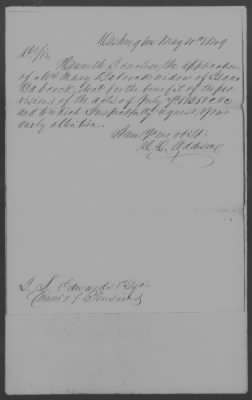 Washington May 10th 1849
Sir,
Herewith I enclose the application
of Mrs Mary Babcock widow of Isaac
Babcock, decd for the benefit of the pro-
visions of the acts of July 7th 1838 &c &c
and to which I respectfully request your
early attention.
I am Yours &c
Addison
J. L. Edwards Esqr
Comr of Pensions